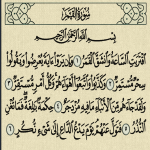 سورة القمر
بسم الله الرحمن الرحيم
اقتربت الساعة وانشق القمر ١ وإن يروا آية يعرضوا ويقولوا
سحر مستمر ٢ وكذبوا واتبعوا أهواءهم وكل أمر مستقر ٣
ولقد جاءهم من الأنباء ما فيه مزدجر ٤ حكمة بالغة فما تغن
النذر ٥ فتول عنهم يوم يدع الداع إلى شيء نكر ٦